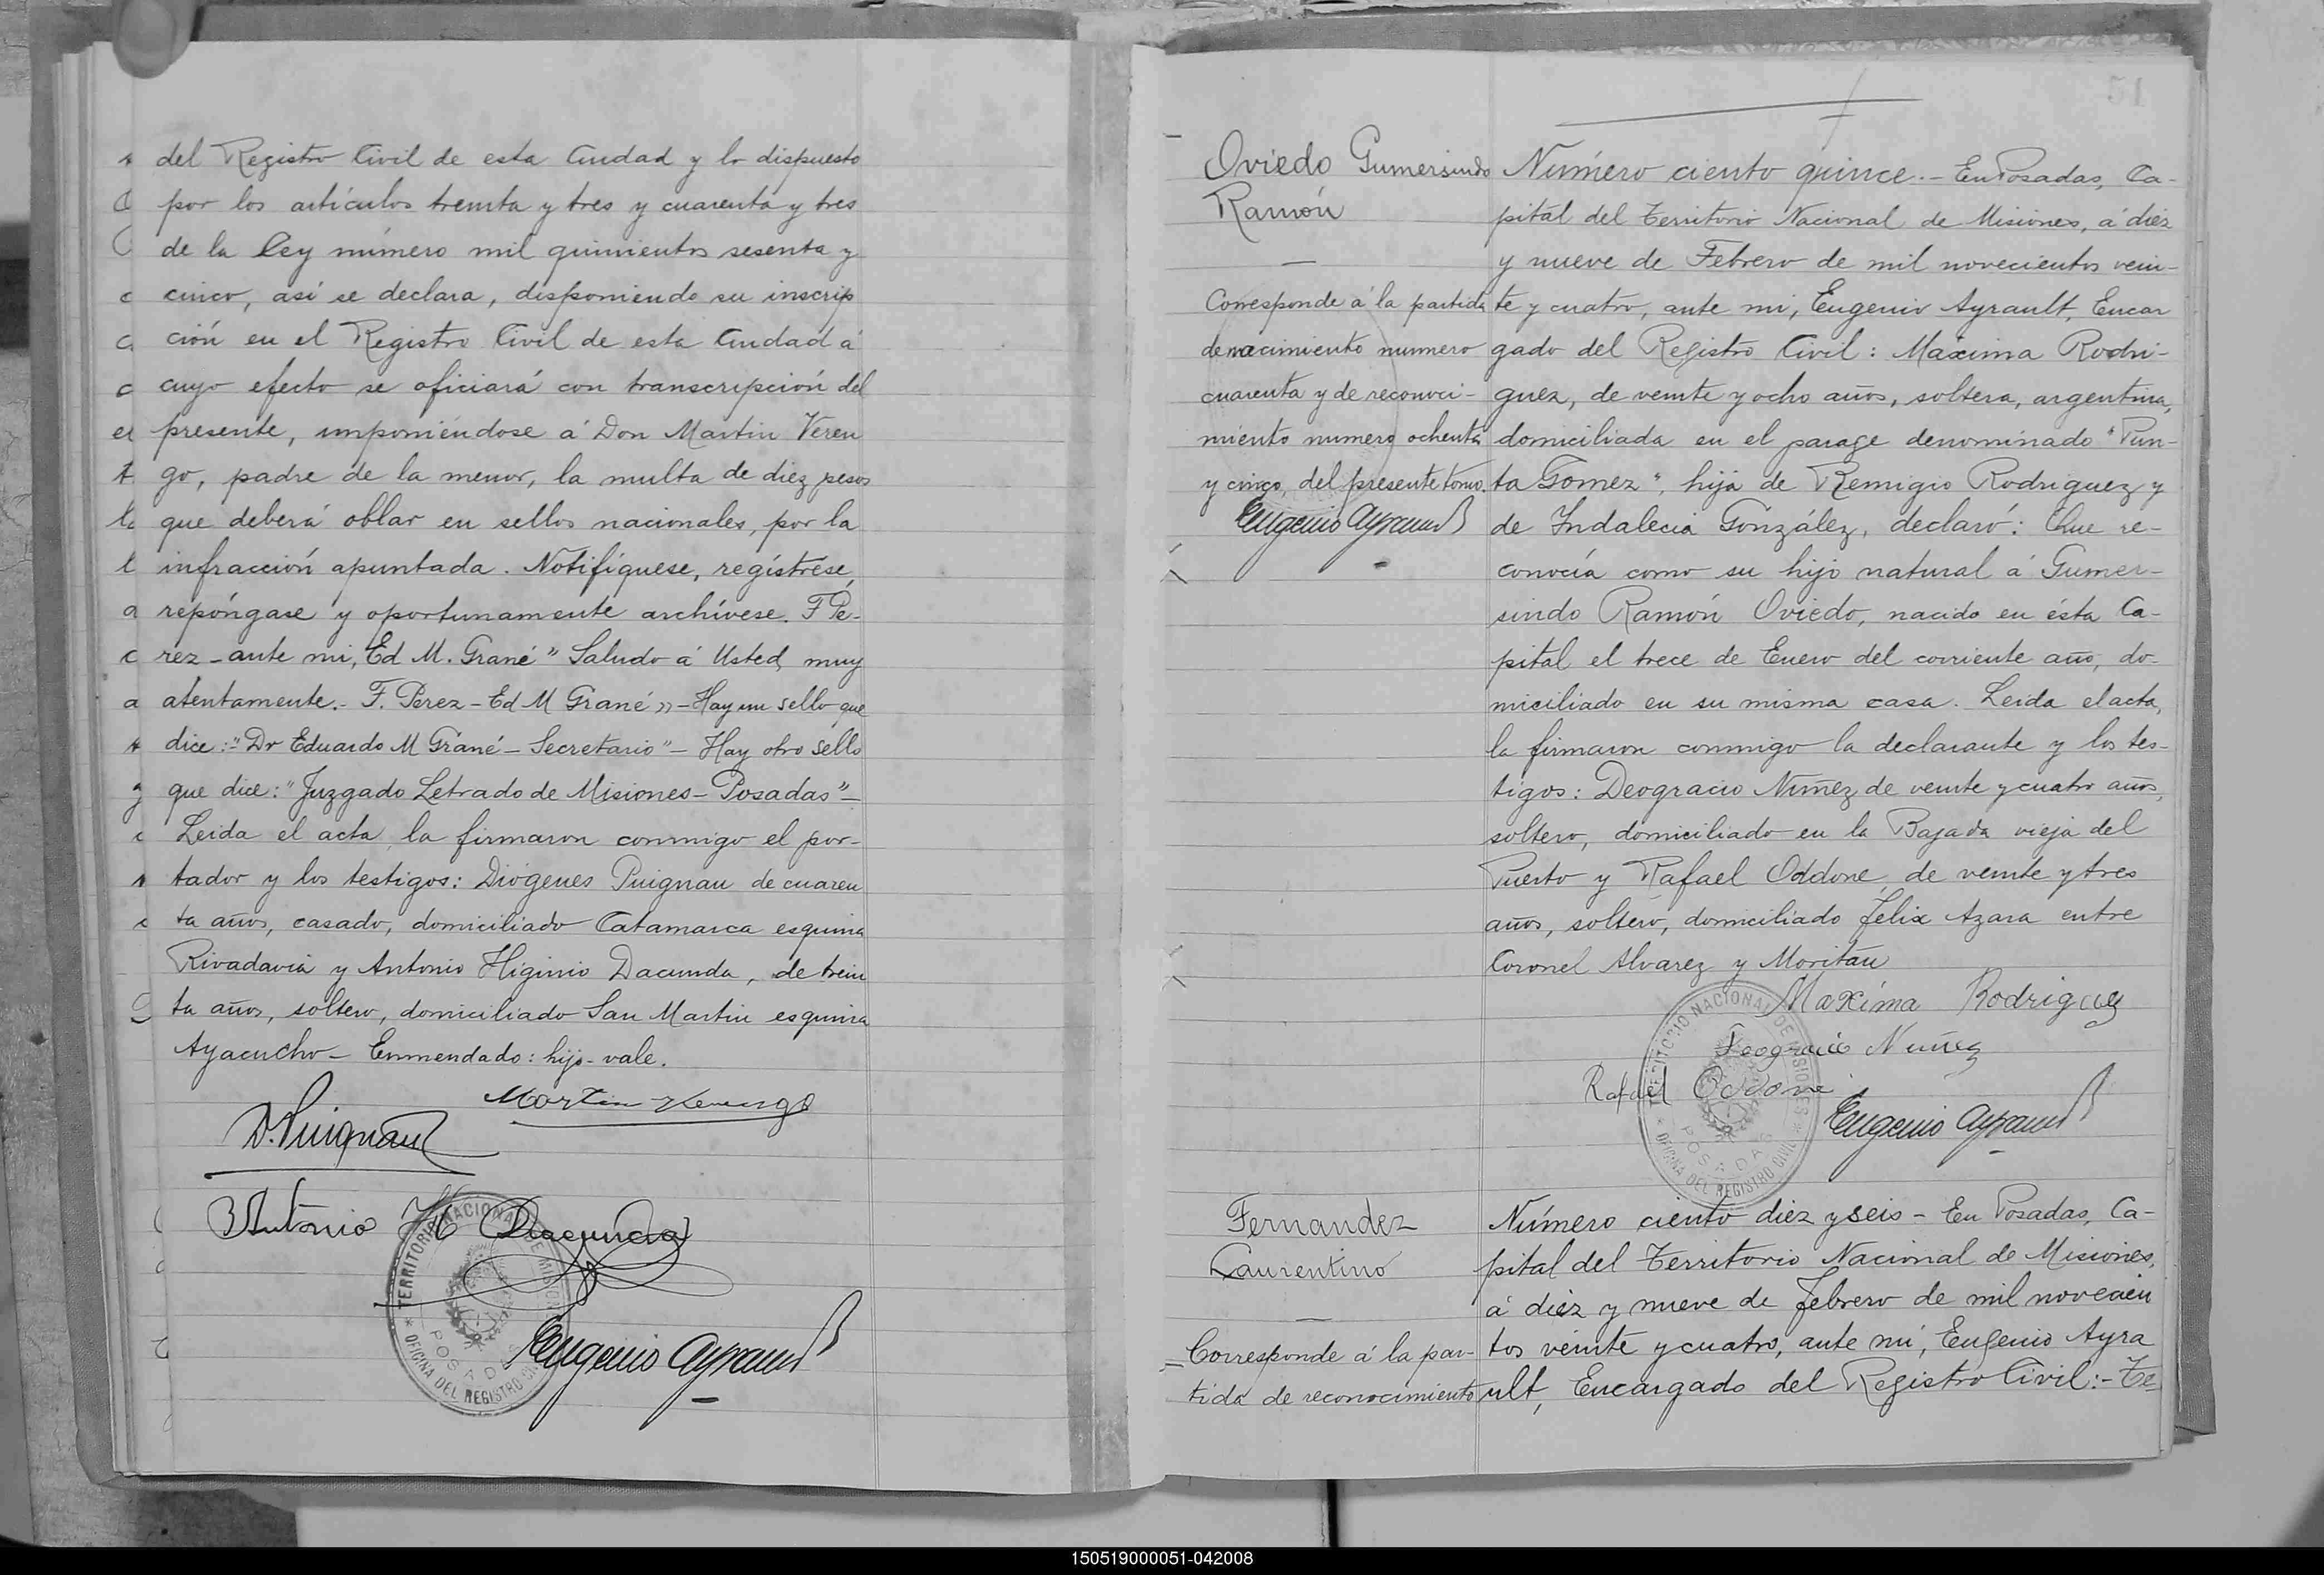 del Registro Civil de esta Ciudad y lo dispuesto
por los artículos treinta y tres y cuarenta y tres
de la Ley número mil quinientos sesenta y
cinco, así se declara, disponiendo su inscrip
ción en el Registro Civil de esta Ciudad á
cuyo efecto se oficiará con transcripción del
presente, imponiéndose á Don Martin Veren
go, padre de la menor, la multa de diez pesos
que deberá oblar en sellos nacionales, por la
infracción apuntada. Notifíquese, regístrese,
repóngase y oportunamente archívese. F Pe-
rez - ante mi, Ed M. Grané" Saludo á Usted muy
atentamente.- F. Perez - Ed M Grané» - Hay un sello que
dice: "Dr Eduardo M Grané - Secretario" - Hay otro sello
que dice: "Juzgado Letrado de Misiones - Posadas" -
Leida el acta, la firmaron conmigo el por-
tador y los testigos: Diógenes Puignau de cuaren
ta años, casado, domiciliado Catamarca esquina
Rivadavia y Antonio Higinio Dacunda, de trein
ta años, soltero, domiciliado San Martin esquina
Ayacucho - Enmendado: hijo - vale.
Martin Verengo
D. Puignau
Antonio H Dacunda
TERRITORIO NACIONAL DE MISIONES
POSADAS
* OFICINA DEL REGISTRO CIVIL
Eugenio Ayrault
51
Oviedo Gumersindo
Ramón
—
Corresponde á la partida
de nacimiento numero
cuarenta y de reconoci-
miento numero ochenta
y cinco, del presente tomo.
Eugenio Ayrault
Número ciento quince.- En Posadas, Ca-
pital del Territorio Nacional de Misiones, á diez
y nueve de Febrero de mil novecientos vein-
te y cuatro, ante mi, Eugenio Ayrault, Encar
gado del Registro Civil: Máxima Rodri-
guez, de veinte y ocho años, soltera, argentina,
domiciliada en el parage denominado "Pun-
ta Gomez", hija de Remigio Rodriguez y
de Indalecia González, declaró: Que re-
conocía como su hijo natural á Gumer-
sindo Ramón Oviedo, nacido en ésta Ca-
pital el trece de Enero del corriente año, do-
miciliado en su misma casa. Leida el acta,
la firmaron conmigo la declarante y los tes-
tigos: Deogracio Nuñez de veinte y cuatro años,
soltero, domiciliado en la Bajada vieja del
Puerto y Rafael Oddone, de veinte y tres
años, soltero, domiciliado Félix Azara entre
Coronel Alvarez y Moritán
Maxima Rodriguez
Deogracio Nuñez
Rafael Oddone
Eugenio Ayrault
TERRITORIO NACIONAL DE MISIONES
POSADAS
* OFICINA DEL REGISTRO CIVIL *
Fernandez
Laurentino
—
Corresponde á la par-
tida de reconocimiento
Número ciento diez y seis - En Posadas, Ca-
pital del Territorio Nacional de Misiones,
á diez y nueve de Febrero de mil novecien
tos veinte y cuatro, ante mi, Eugenio Ayra
ult, Encargado del Registro Civil:- Te
150519000051-042008